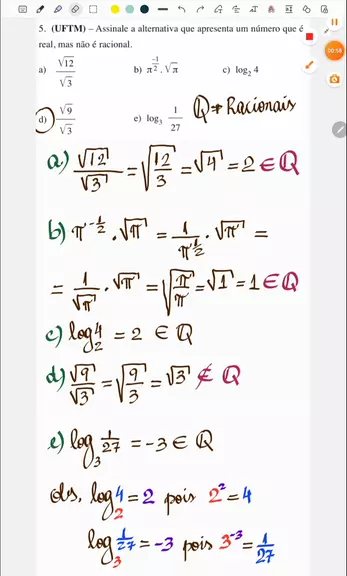 00:58
5. (UFTM) – Assinale a alternativa que apresenta um número que é
real, mas não é racional.
a) √12/√3 b) π^(-1/2) . √π c) log₂ 4
d) √9/√3 e) log₃ 1/27
Q → Racionais
a) √12/√3 = √(12/3) = √4 = 2 ∈ Q
b) π^(-1/2) . √π = 1/π^(1/2) . √π =
= 1/√π . √π = √(π/π) = √1 = 1 ∈ Q
c) log₂ 4 = 2 ∈ Q
d) √9/√3 = √(9/3) = √3 ∉ Q
e) log₃ 1/27 = -3 ∈ Q
Obs, log₂ 4 = 2 pois 2² = 4
log₃ 1/27 = -3 pois 3⁻³ = 1/27